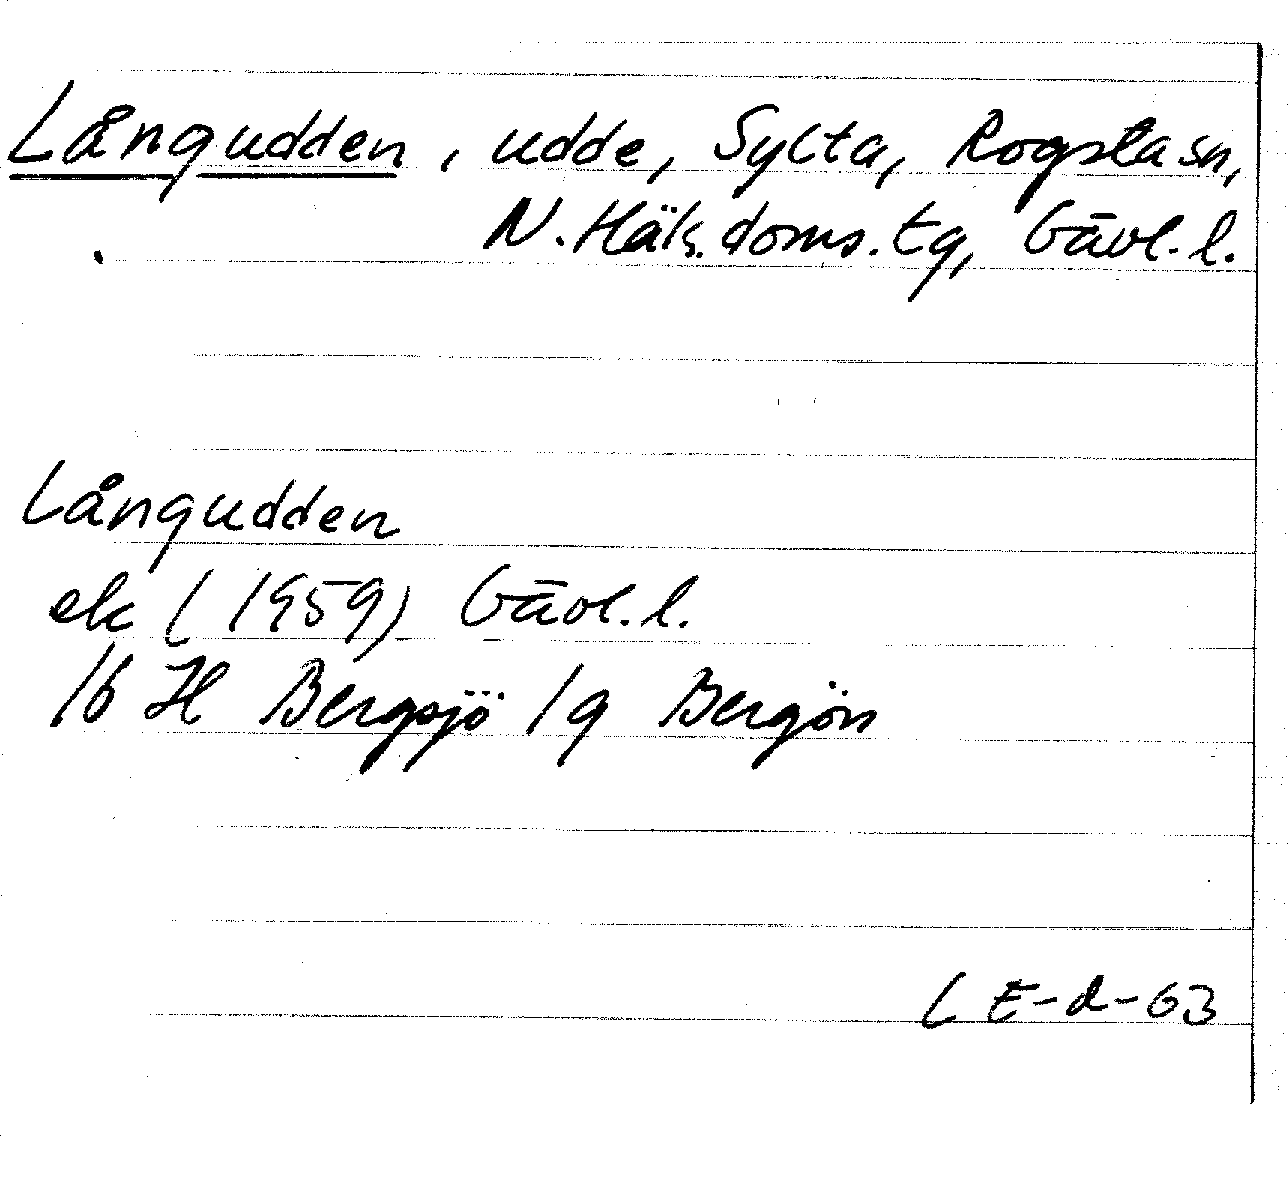 Långudden, udde, Sylta, Rogsta sn,
N. Häls. doms. tg, Gävl. l.
Långudden
ek (1959) Gävl. l.
16 H Bergsjö 1g Bergön
L E-d-63